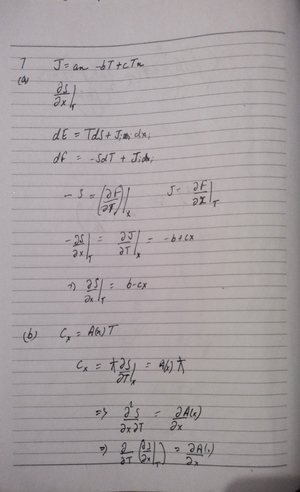 7 J = ax - bT + cTx
(a)
∂S/∂x|_T
dE = TdS + J_i dx_i
dF = -SdT + J_i dx_i
-S = (∂F/∂T)|_x J = ∂F/∂x|_T
-∂S/∂x|_T = ∂J/∂T|_x = -b+cx
⇒ ∂S/∂x|_T = b-cx
(b) C_x = A(x) T
C_x = T ∂S/∂T|_x = A(x) T
⇒ ∂²S/∂x∂T = ∂A(x)/∂x
⇒ ∂/∂T (∂S/∂x|_T) = ∂A(x)/∂x